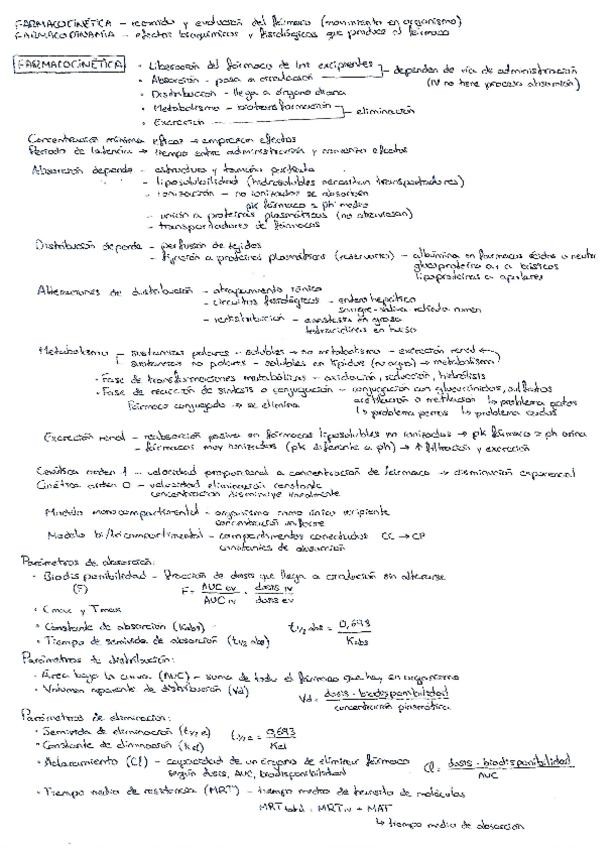 FARMACOCINÉTICA - recorrido y evolución del fármaco (movimiento en organismo)
FARMACODINAMIA - efectos bioquímicos y fisiológicos que produce el fármaco
FARMACOCINÉTICA
· Liberación del fármaco de los excipientes
· Absorción - pasa a circulación
- dependen de vía de administración
(IV no tiene proceso absorción)
· Distribución - llega a órgano diana
· Metabolismo - biotransformación
· Excreción
- eliminación
Concentración mínima eficaz → empiezan efectos
Periodo de latencia → tiempo entre administración y comienzo efectos
Absorción depende - estructura y tamaño partícula
- liposolubilidad (hidrosolubles necesitan transportadores)
- ionización - no ionizados se absorben
pk fármaco ≈ ph medio
- unión a proteínas plasmáticas (no atraviesan)
- transportadores de fármacos
Distribución depende - perfusión de tejidos
- fijación a proteínas plasmáticas (reservorio) - albúmina en fármacos ácidos o neutro
glucoproteína a básicos
lipoproteína a apolares
Alteraciones de distribución - atrapamiento iónico
- circuitos fisiológicos - entero hepático
sangre-saliva retículo rumen
- redistribución - anestesia en grasa
tetraciclinas en hueso
Metabolismo - sustancias polares - solubles → no metabolismo - excreción renal
sustancias no polares - solubles en lípidos (no agua) → metabolismo
· Fase de transformaciones metabólicas - oxidación, reducción, hidrólisis
· Fase de reacción de síntesis o conjugación - conjugación con glucurónidos, sulfatos
acetilación o metilación ↳ problema gatos
Fármaco conjugado → se elimina ↳ problema perros ↳ problema cerdos
Excreción renal - reabsorción pasiva en fármacos liposolubles no ionizados → pk fármaco ≈ ph orina
- fármacos muy ionizados (pk diferente a ph) → ↑ filtración y excreción
Cinética orden 1 - velocidad proporcional a concentración de fármaco → disminución exponencial
Cinética orden 0 - velocidad eliminación constante
concentración disminuye linealmente
Modelo monocompartimental - organismo como único recipiente
concentración uniforme
Modelo bi/tricompartimental - compartimentos conectados CC → CP
constantes de absorción
Parámetros de absorción:
· Biodisponibilidad - fracción de dosis que llega a circulación sin alterarse
(F) F = AUC ev / AUC iv · dosis iv / dosis ev
· Cmax y Tmax
· Constante de absorción (Kabs)
· Tiempo de semivida de absorción (t1/2 abs) t1/2 abs = 0,693 / Kabs
Parámetros de distribución:
· Área bajo la curva (AUC) - suma de todo el fármaco que hay en organismo
· Volumen aparente de distribución (Vd) Vd = dosis · biodisponibilidad / concentración plasmática
Parámetros de eliminación:
· Semivida de eliminación (t1/2 e) t1/2 e = 0,693 / Kel
· Constante de eliminación (Kel)
· Aclaramiento (Cl) - capacidad de un órgano de eliminar fármaco Cl = dosis · biodisponibilidad / AUC
según dosis, AUC, biodisponibilidad
· Tiempo medio de residencia (MRT) - tiempo medio de tránsito de moléculas
MRT total = MRT iv + MAT
↳ tiempo medio de absorción